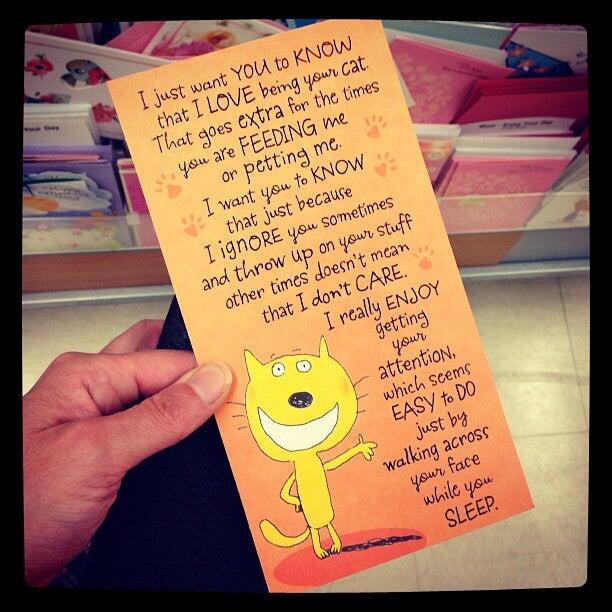 I just want YOU to KNOW
that I LOVE being your cat.
That goes extra for the times
you are FEEDING me
or petting me.
I want you to KNOW
that just because
I IGNORE you sometimes
and throw up on your stuff
other times doesn't mean
that I don't CARE.
I really ENJOY
getting
your
attention,
which seems
EASY to DO
just by
walking across
your face
while you
SLEEP.
Your Day